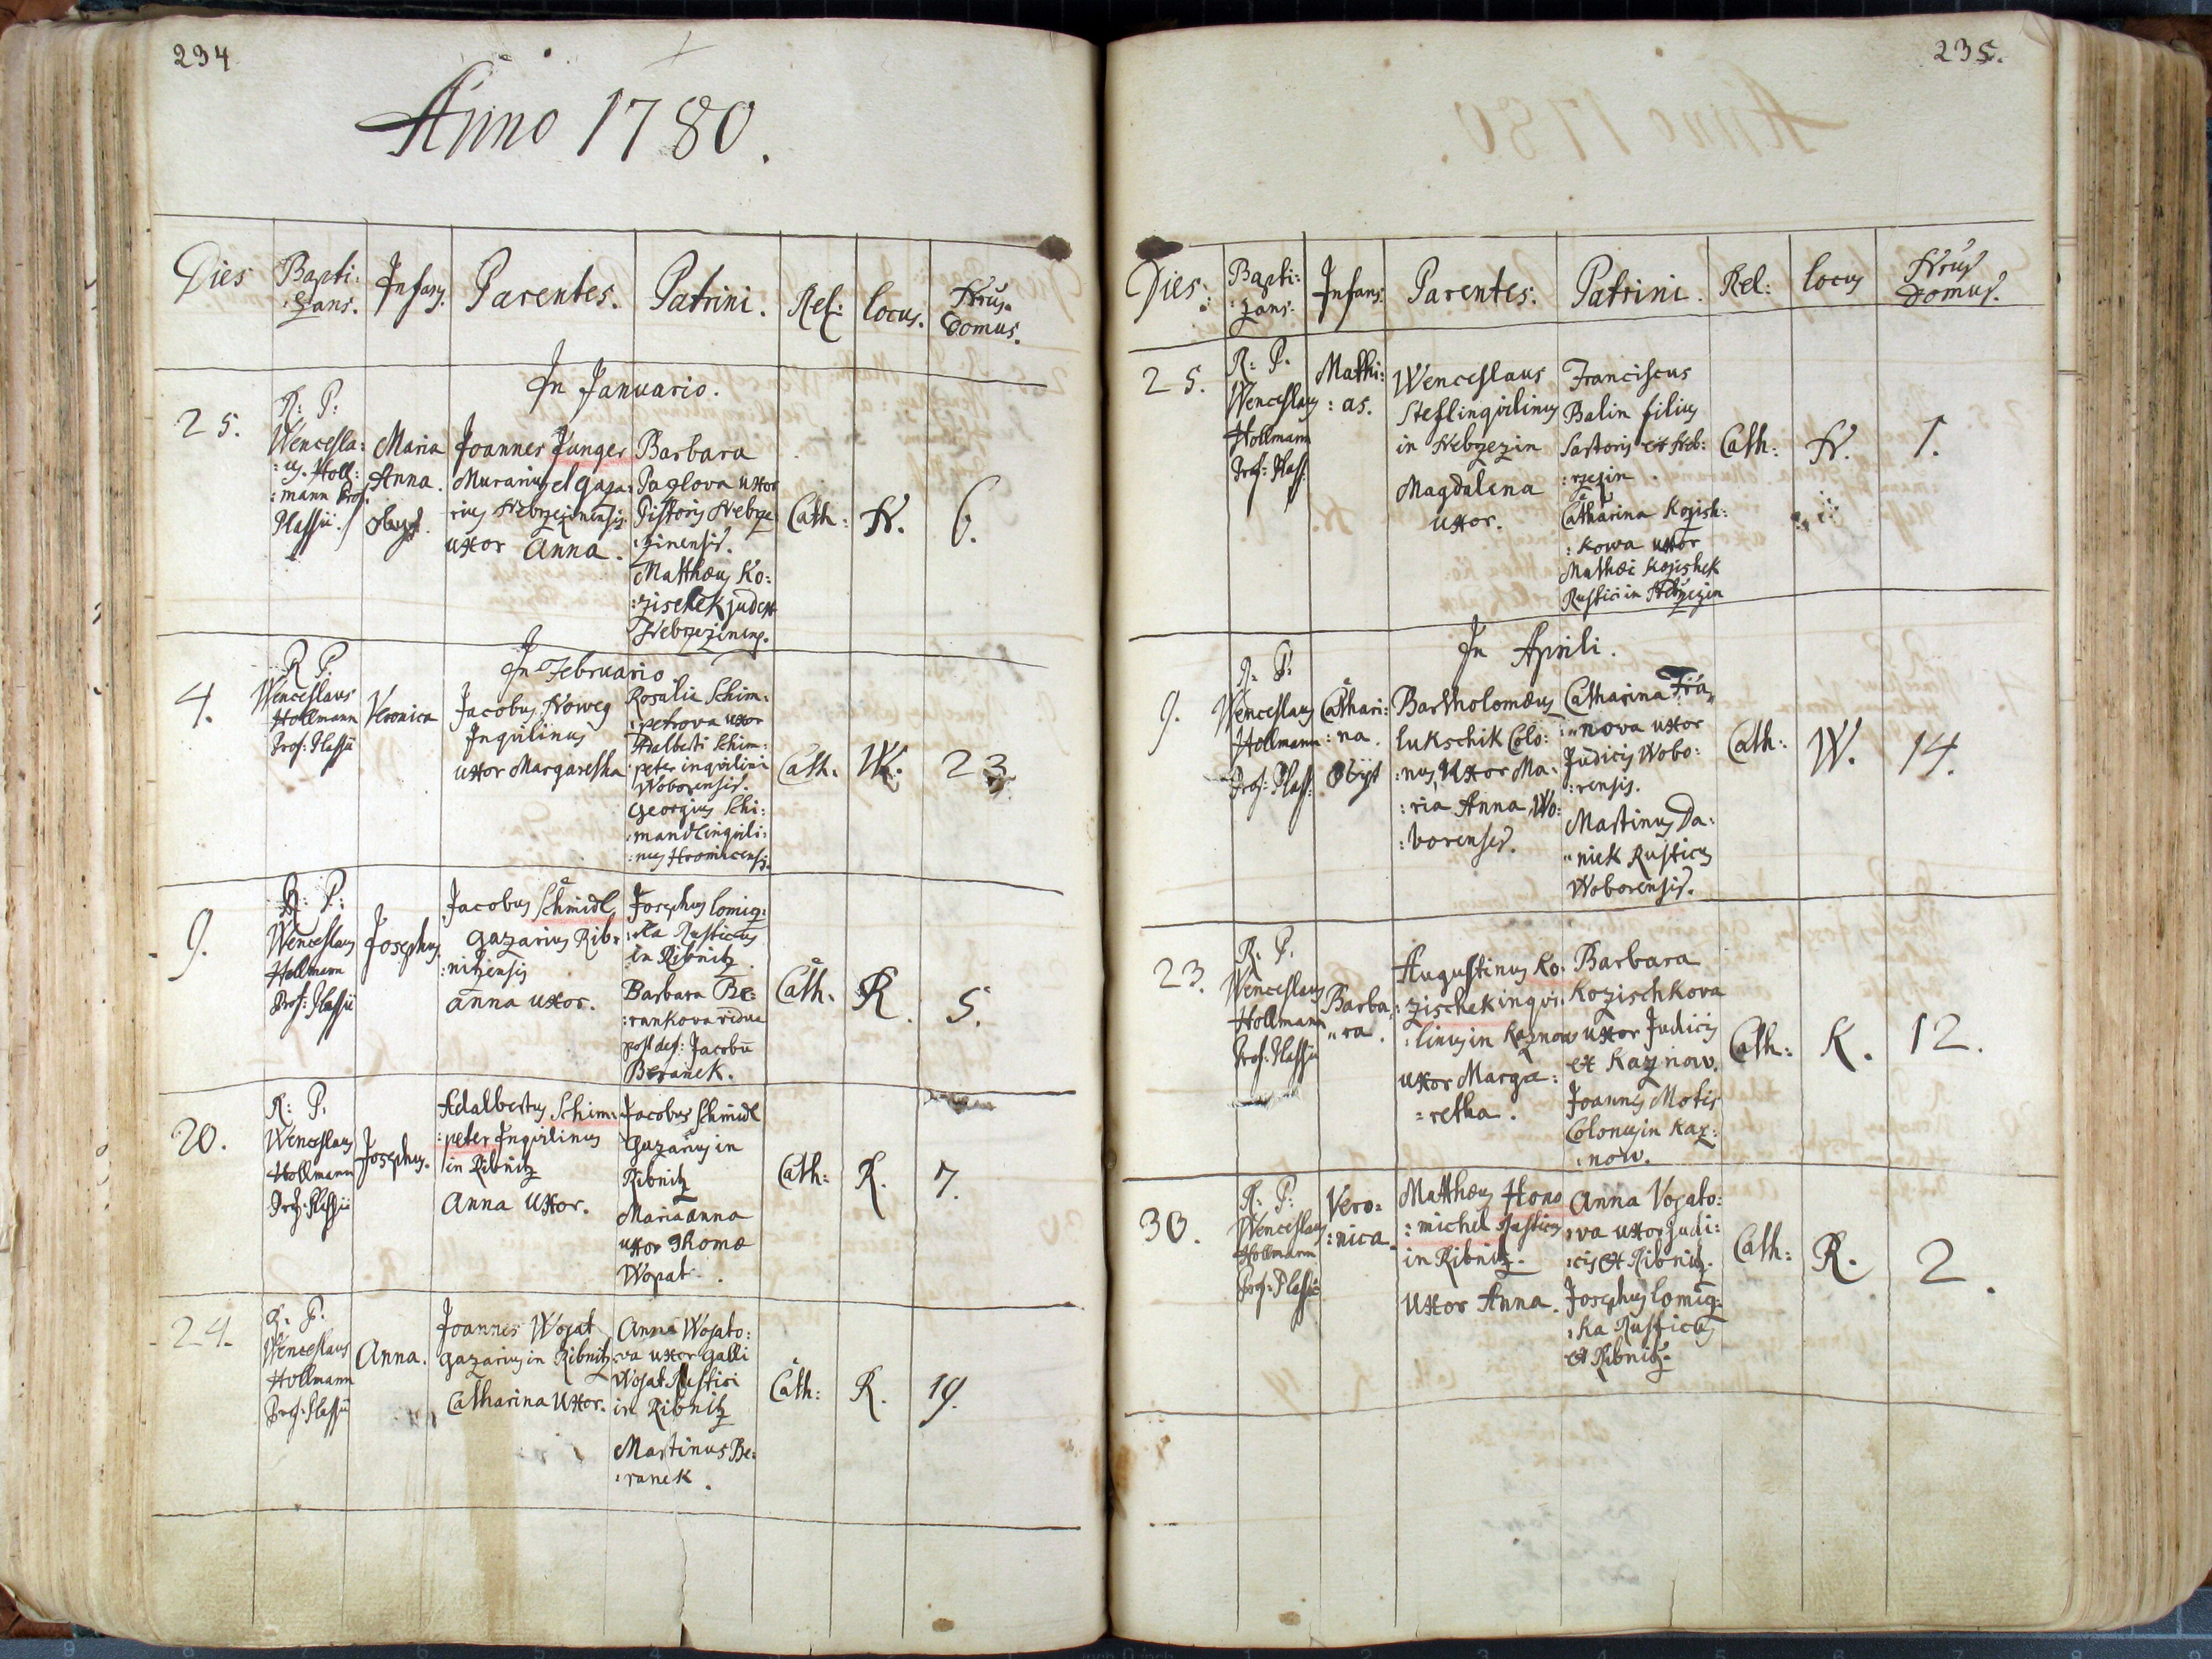 234
Anno 1780.
Dies Bapti: Infans. Parentes. Patrini. Rel: locus. Nrus.
:zans. Domus.
In Januario.
25.
R: P:
Wencesla:
:us. Holl:
:mann Prof.
Plassii.
Maria
Anna.
obijt.
Joannes Junger
Murarius et gaza:
rius Nebrzezinensis
uxor Anna.
Barbara
Paglova uxor
Pistoris Nebrze
:zinensis.
Matthæus Ko:
:zischek judex
Nebrzezinens.
Cath:
N.
6.
In Februario
4.
R P:
Wenceslaus
Hollmann
Prof: Plassii
Veronica
Jacobus Noweg
Inquilinus
uxor Margaretha
Rosalia Schim:
:petrova uxor
Adalberti Schim:
:peter inquilini
Woborensis.
Georgius Schi:
:mandl inquili:
:nus Hromicensis.
Cath.
W.
23
9.
R: P:
Wenceslaus
Hollmann
Prof: Plassii
Josephus.
Jacobus Schmidl
gazarius Rib:
:nitzensis
anna uxor.
Josephus lomiq:
:ka Rusticus
in Ribnitz.
Barbara Be:
:rankova vidua
post def: Jacobu
Beranek.
Cath.
R.
5.
20.
R: P.
Wenceslaus
Hollmann
Prof: Plassii
Josephus.
Adalbertus Schim:
:peter Inquilinus
in Ribnitz
Anna Uxor.
Jacobus Schmidl
gazarius in
Ribnitz
Maria anna
uxor Thomæ
Wopat.
Cath:
R.
7.
24.
R. P:
Wenceslaus
Hollmann
Prof: Plassii
Anna.
Joannes Wopat
gazarius in Ribnitz
Catharina Uxor.
Anna Wopato:
:va uxor Galli
Wopat Rustici
in Ribnitz
Martinus Be:
:ranek.
Cath:
R.
19.
235.
Dies: Bapti: Infans. Parentes. Patrini. Rel: locus Nrus
:zans. Domus.
25.
R: P.
Wenceslaus
Hollmann
Prof: Plass:
Mathi:
:as.
Wenceslaus
Stefl inquilinus
in Nebrzezin
Magdalena
uxor.
Franciscus
Balin filius
Sartoris ex Neb:
:rzezin.
Catharina Kozish:
:kowa uxor
Mathæi Kozishek
Rustici in Nebrzezin
Cath:
N.
1.
In Aprili.
9.
R. P:
Wenceslaus
Hollmann
Prof: Plass:
Cathari:
:na.
Obijt
Bartholomæus
lukschik Colo:
:nus, Uxor Ma:
:ria Anna Wo:
:borenses.
Catharina Fra„
„nova uxor
Judicis Wobo:
:rensis.
Martinus Da:
„niek Rusticus
Woborensis.
Cath:
W.
14.
23.
R. P.
Wenceslaus
Hollmann
Prof: Plassii
Barba„
„ra.
Augustinus Ko:
:zischek inqui:
:linus in Kaznow
uxor Marga:
:retha.
Barbara
Kozischkova
uxor Judicis
ex Kaznow.
Joannes Motis
Colonus in Kaz:
:now.
Cath:
K.
12.
30.
R: P:
Wenceslaus
Hollmann
Prof: Plassii
Vero:
:nica
Matthæus Hono
:michel Rusticus
in Ribnitz.
Uxor Anna.
Anna Vopato:
:va uxor Judi:
:cis ex Ribnitz.
Josephus lomiq:
:ka Rusticus
ex Ribnitz.
Cath:
R.
2.